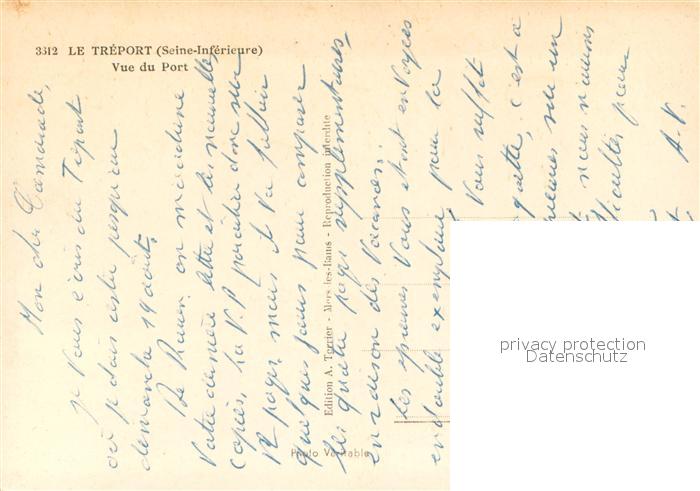 3312 LE TRÉPORT (Seine-Inférieure)
Vue du Port
Mon cher Camarade,
je vous écris du Tréport
où je dois rester jusqu'au
dimanche 19 août.
De Rouen on
votre dernière lettre et les nouvelles
copies. La V.P. paraîtra donc sur
12 pages mais il va falloir
quelques jours pour composer
les quatre pages supplémentaires
en raison des vacances.
Les épreuves vous seront envoyées
en double exemplaire pour la
vous suffit
c'est à
sur un
nous
pour
A.V.
Edition A. Terrier - Mers-les-Bains - Reproduction interdite
Photo Véritable
privacy protection
Datenschutz